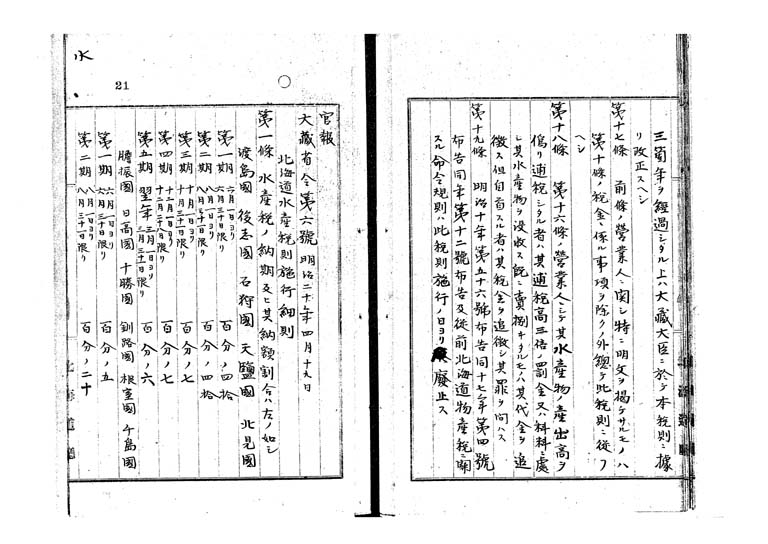 三箇年ヲ經過シタル上ハ大藏大臣ニ於テ本税則ニ據
リ改正スヘシ
第十七條 前條ノ營業人ニ関シ特ニ明文ヲ掲ケサルモノハ
第十條ノ税金ニ係ル事項ヲ除クノ外總テ此税則ニ從フ
ヘシ
第十八條 第十六條ノ營業人ニシテ其水産物ノ産出高ヲ
偽リ逋税シタル者ハ其逋税高三倍ノ罰金又ハ科料ニ處
シ其水産物ヲ没收ス既ニ賣捌キタルモノハ其代金ヲ追
徴ス但自首スル者ハ其税金ヲ追徴シ其罪ヲ問ハス
第十九條 明治十年第五十六號布告同十七年第四號
布告同年第十二號布告及從前北海道物産税ニ関
スル命令規則ハ此税則施行ノ日ヨリ廢止ス
水
21
官報
大藏省令第六號 明治二十年四月十九日
北海道水産税則施行細則
第一條 水産税ノ納期及ヒ其納額割合ハ左ノ如シ
渡島國 後志國 石狩國 天鹽國 北見國
第一期 六月一日ヨリ六月三十日限リ 百分ノ四拾
第二期 八月一日ヨリ八月三十一日限リ 百分ノ四拾
第三期 十月一日ヨリ十月三十一日限リ 百分ノ七
第四期 十二月一日ヨリ十二月二十八日限リ 百分ノ七
第五期 翌年 三月一日ヨリ三月三十一日限リ 百分ノ六
膽振國 日高國 十勝國 釧路國 根室國 千島國
第一期 六月一日ヨリ六月三十日限リ 百分ノ五
第二期 八月一日ヨリ八月三十一日限リ 百分ノ二十
北海道廳